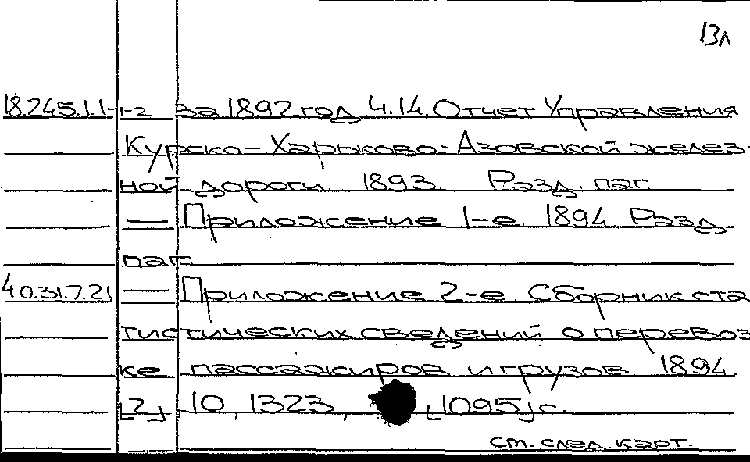 13л
18.245.1.1-1-2 за 1892 год Ч.14. Отчет Управления
Курско-Харьково-Азовской желез-
ной дороги 1893. Разд. паг.
— Приложение 1-е 1894 Разд.
паг.
40.31.7.21 — Приложение 2-е Сборник ста
тистических сведений о перевоз
ке пассажиров и грузов 1894.
[2], 10, 1323, [1095] с.
см. след. карт.